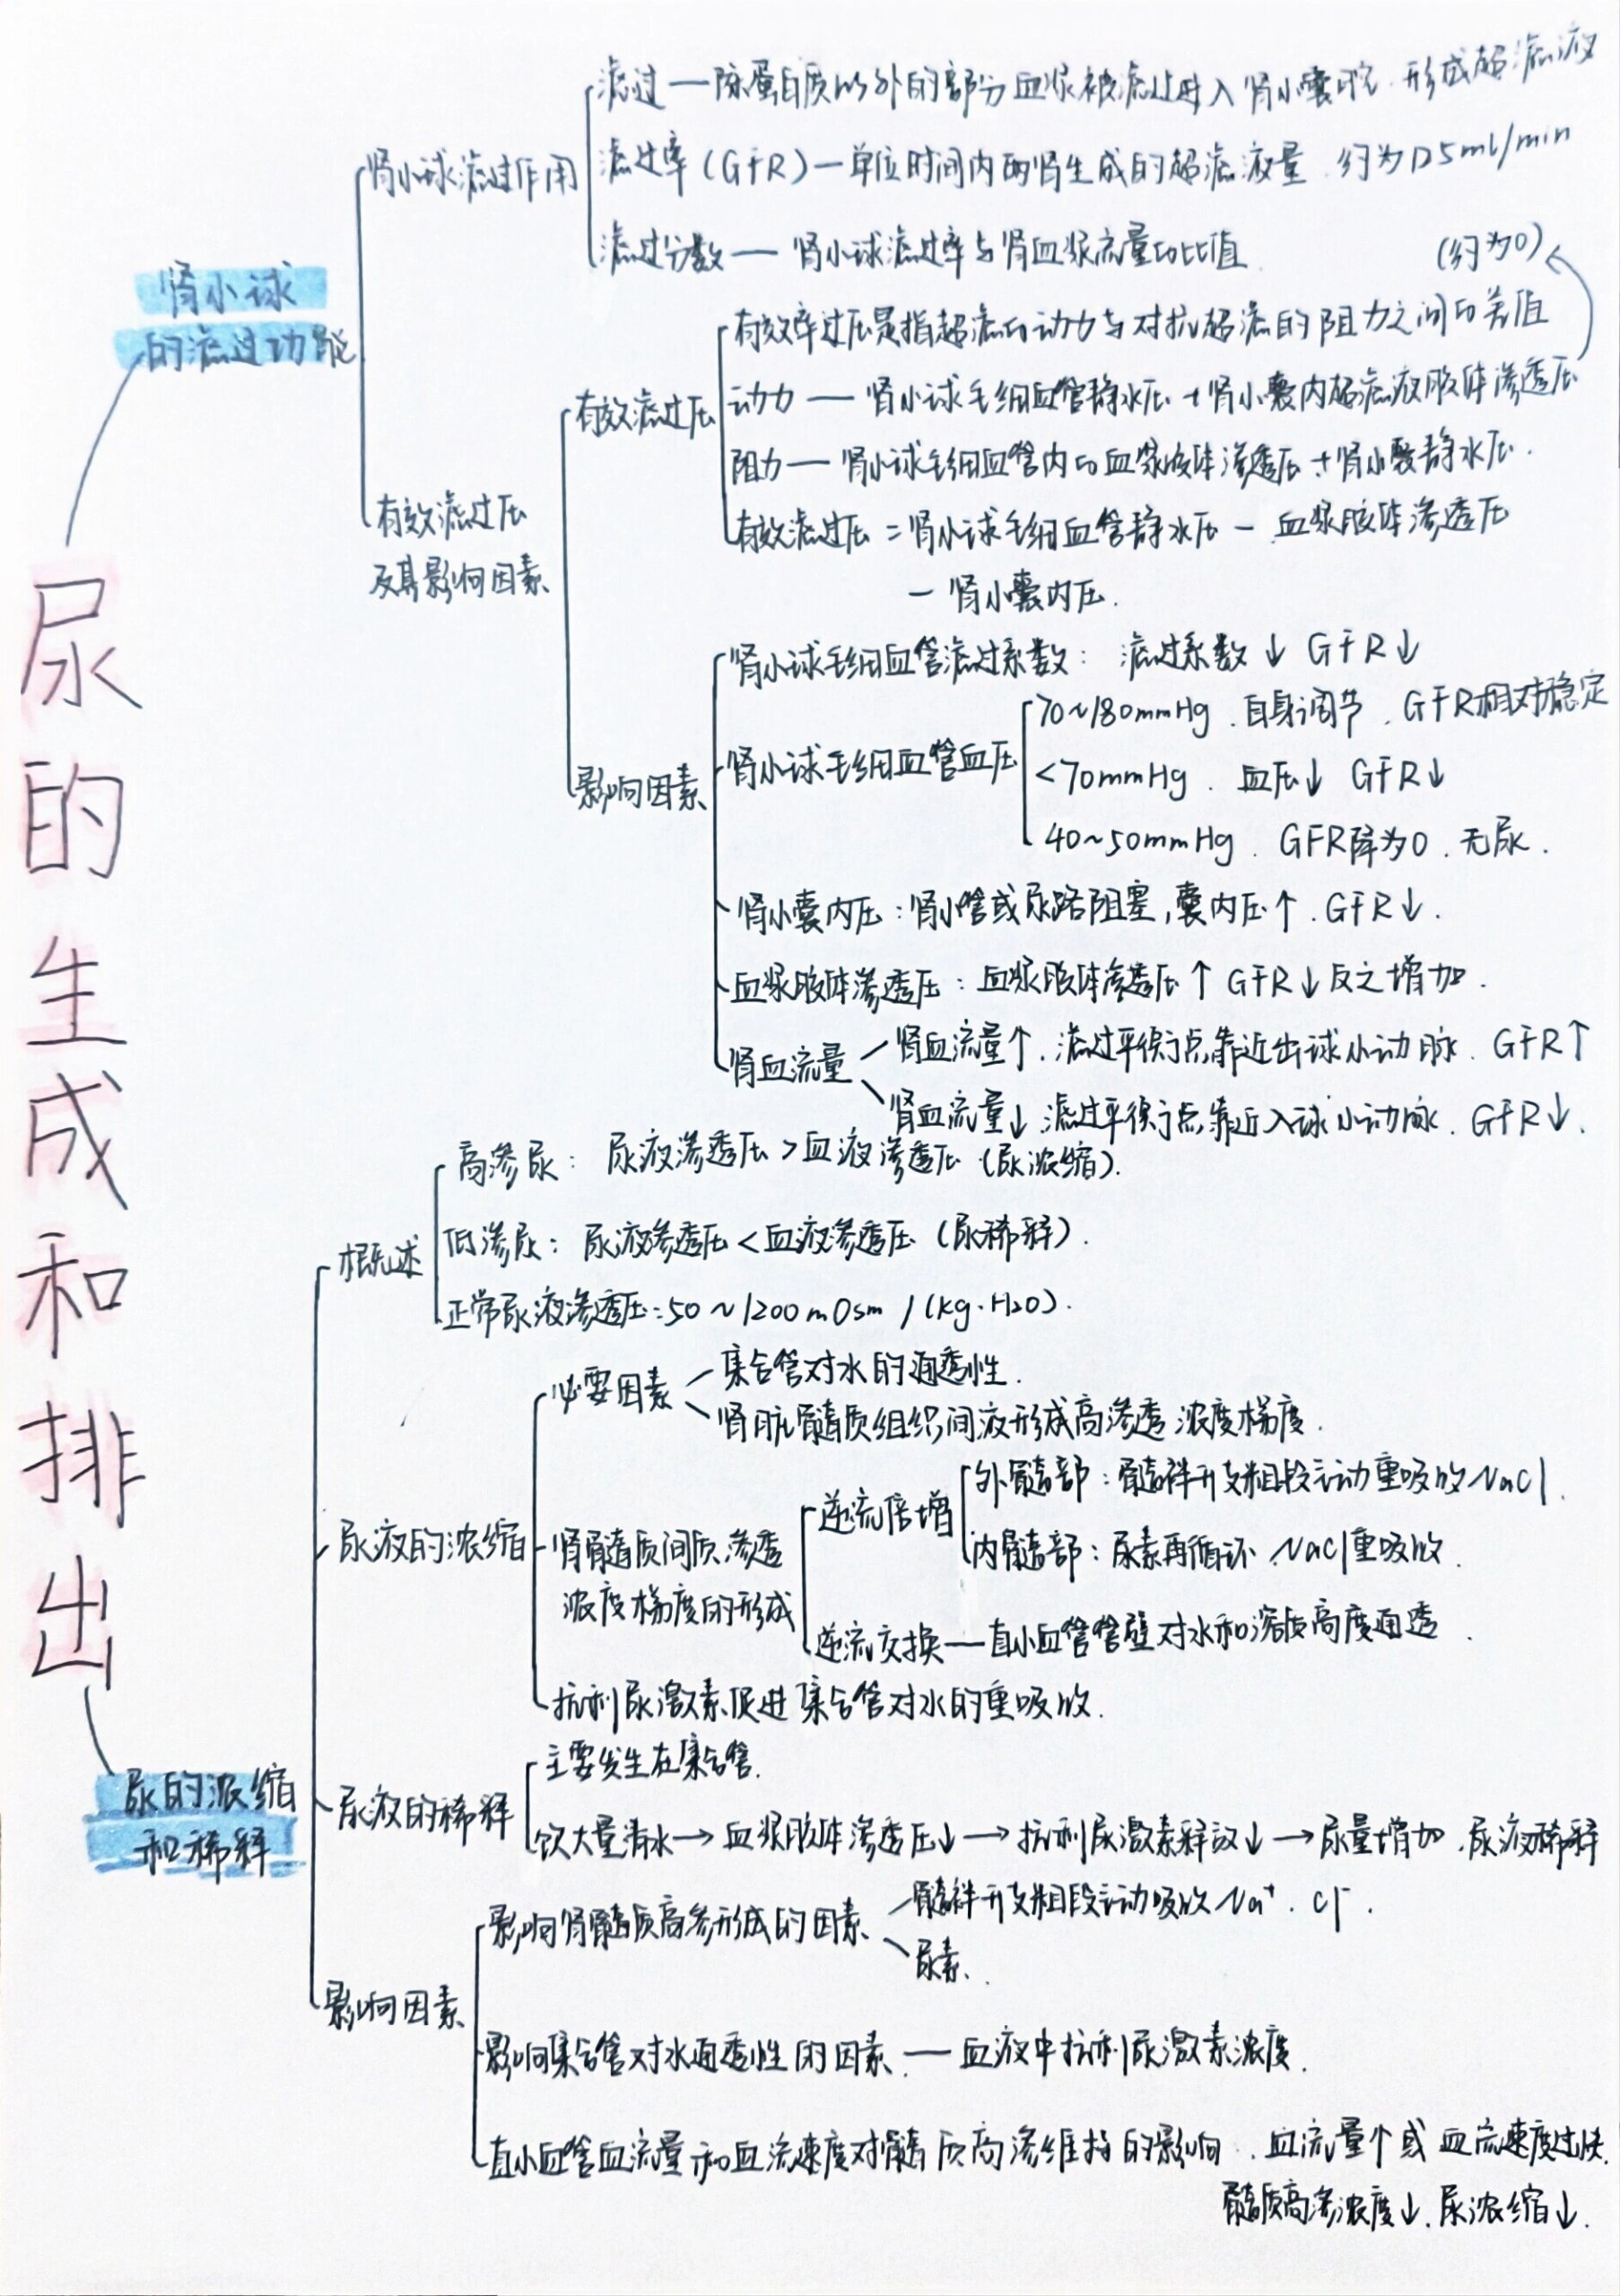 尿的生成和排出
肾小球
的滤过功能
肾小球滤过作用
滤过—除蛋白质以外的部分血浆被滤过进入肾小囊腔.形成超滤液
滤过率(GFR)—单位时间内两肾生成的超滤液量.约为125ml/min
滤过分数—肾小球滤过率与肾血浆流量的比值
(约为0)
有效滤过压
及其影响因素
有效滤过压
有效率过压是指超滤的动力与对抗超滤的阻力之间的差值
动力—肾小球毛细血管静水压+肾小囊内超滤液胶体渗透压
阻力—肾小球毛细血管内的血浆胶体渗透压+肾小囊静水压.
有效滤过压=肾小球毛细血管静水压-血浆胶体渗透压
-肾小囊内压.
影响因素
肾小球毛细血管滤过系数:滤过系数↓GFR↓
肾小球毛细血管血压
70~180mmHg.自身调节.GFR相对稳定
<70mmHg.血压↓GFR↓
40~50mmHg.GFR降为0.无尿.
肾小囊内压:肾小管或尿路阻塞,囊内压↑.GFR↓.
血浆胶体渗透压:血浆胶体渗透压↑GFR↓反之增加.
肾血流量
肾血流量↑.滤过平衡点靠近出球小动脉.GFR↑
肾血流量↓.滤过平衡点靠近入球小动脉.GFR↓.
尿的浓缩
和稀释
概述
高渗尿:尿液渗透压>血液渗透压(尿浓缩).
低渗尿:尿液渗透压<血液渗透压(尿稀释).
正常尿液渗透压:50~1200mOsm/(kg·H2O).
尿液的浓缩
必要因素
集合管对水的通透性.
肾脏髓质组织间液形成高渗透浓度梯度.
肾髓质间质渗透
浓度梯度的形成
逆流倍增
外髓部:髓袢升支粗段主动重吸收NaCl.
内髓部:尿素再循环、NaCl重吸收.
逆流交换—直小血管管壁对水和溶质高度通透.
抗利尿激素促进集合管对水的重吸收.
尿液的稀释
主要发生在集合管.
饮大量清水→血浆胶体渗透压↓→抗利尿激素释放↓→尿量增加.尿液稀释
影响因素
影响肾髓质高渗形成的因素
髓袢升支粗段主动吸收Na⁺.Cl⁻.
尿素.
影响集合管对水通透性的因素.—血液中抗利尿激素浓度.
直小血管血流量和血流速度对髓质高渗维持的影响.血流量↑或血流速度过快.
髓质高渗浓度↓.尿浓缩↓.